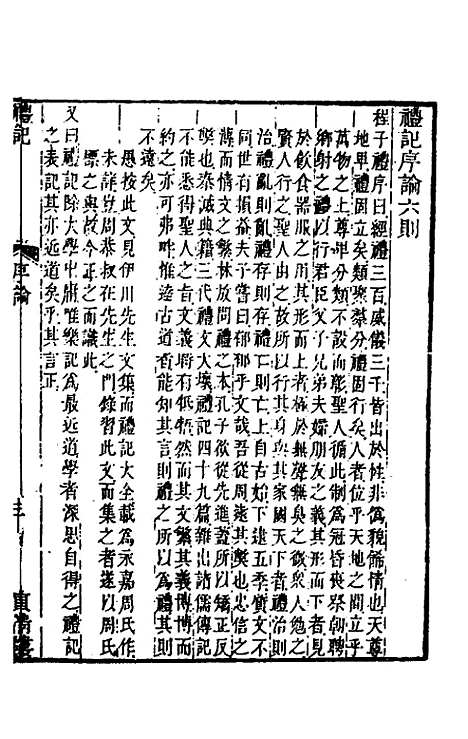 禮記序論六則
程子禮序曰經禮三百威儀三千皆出於性非僞貌飾情也天尊
地卑禮固立矣類聚羣分禮固行矣人者位乎天地之間立乎
萬物之上尊卑分類不設而彰聖人循此制爲冠昏喪祭朝聘
鄉射之禮以行君臣父子兄弟夫婦朋友之義其形而下者見
於飲食器服之用其形而上者極於無聲無臭之微衆人勉之
賢人行之聖人由之故所以行其身與其家國天下者禮治則
治禮亂則亂禮存則存禮亡則亡上自古始下逮五季質文不
同世有損益夫子嘗曰郁郁乎文哉吾從周逮其獘也忠信之
薄而情文之繁林放問禮之本孔子欲從先進蓋所以矯正反
獘也泰滅典籍三代禮文大壞禮記四十九篇雜出諸儒傳記
不能悉得聖人之旨文義時有牴牾然而其文繁其義博博而
約之亦可弗畔惟達古道者能知其言則禮之所以爲禮其則
不遠矣
愚按此文見伊川先生文集而禮記大全載爲永嘉周氏作
未詳豈周恭叔在先生之門錄習此文而集之者遂以周氏
標之與故今正之而識此
又曰禮記除大學中庸惟樂記爲最近道學者深思自得之禮記
之表記其亦近道矣乎其言正
禮記
序論